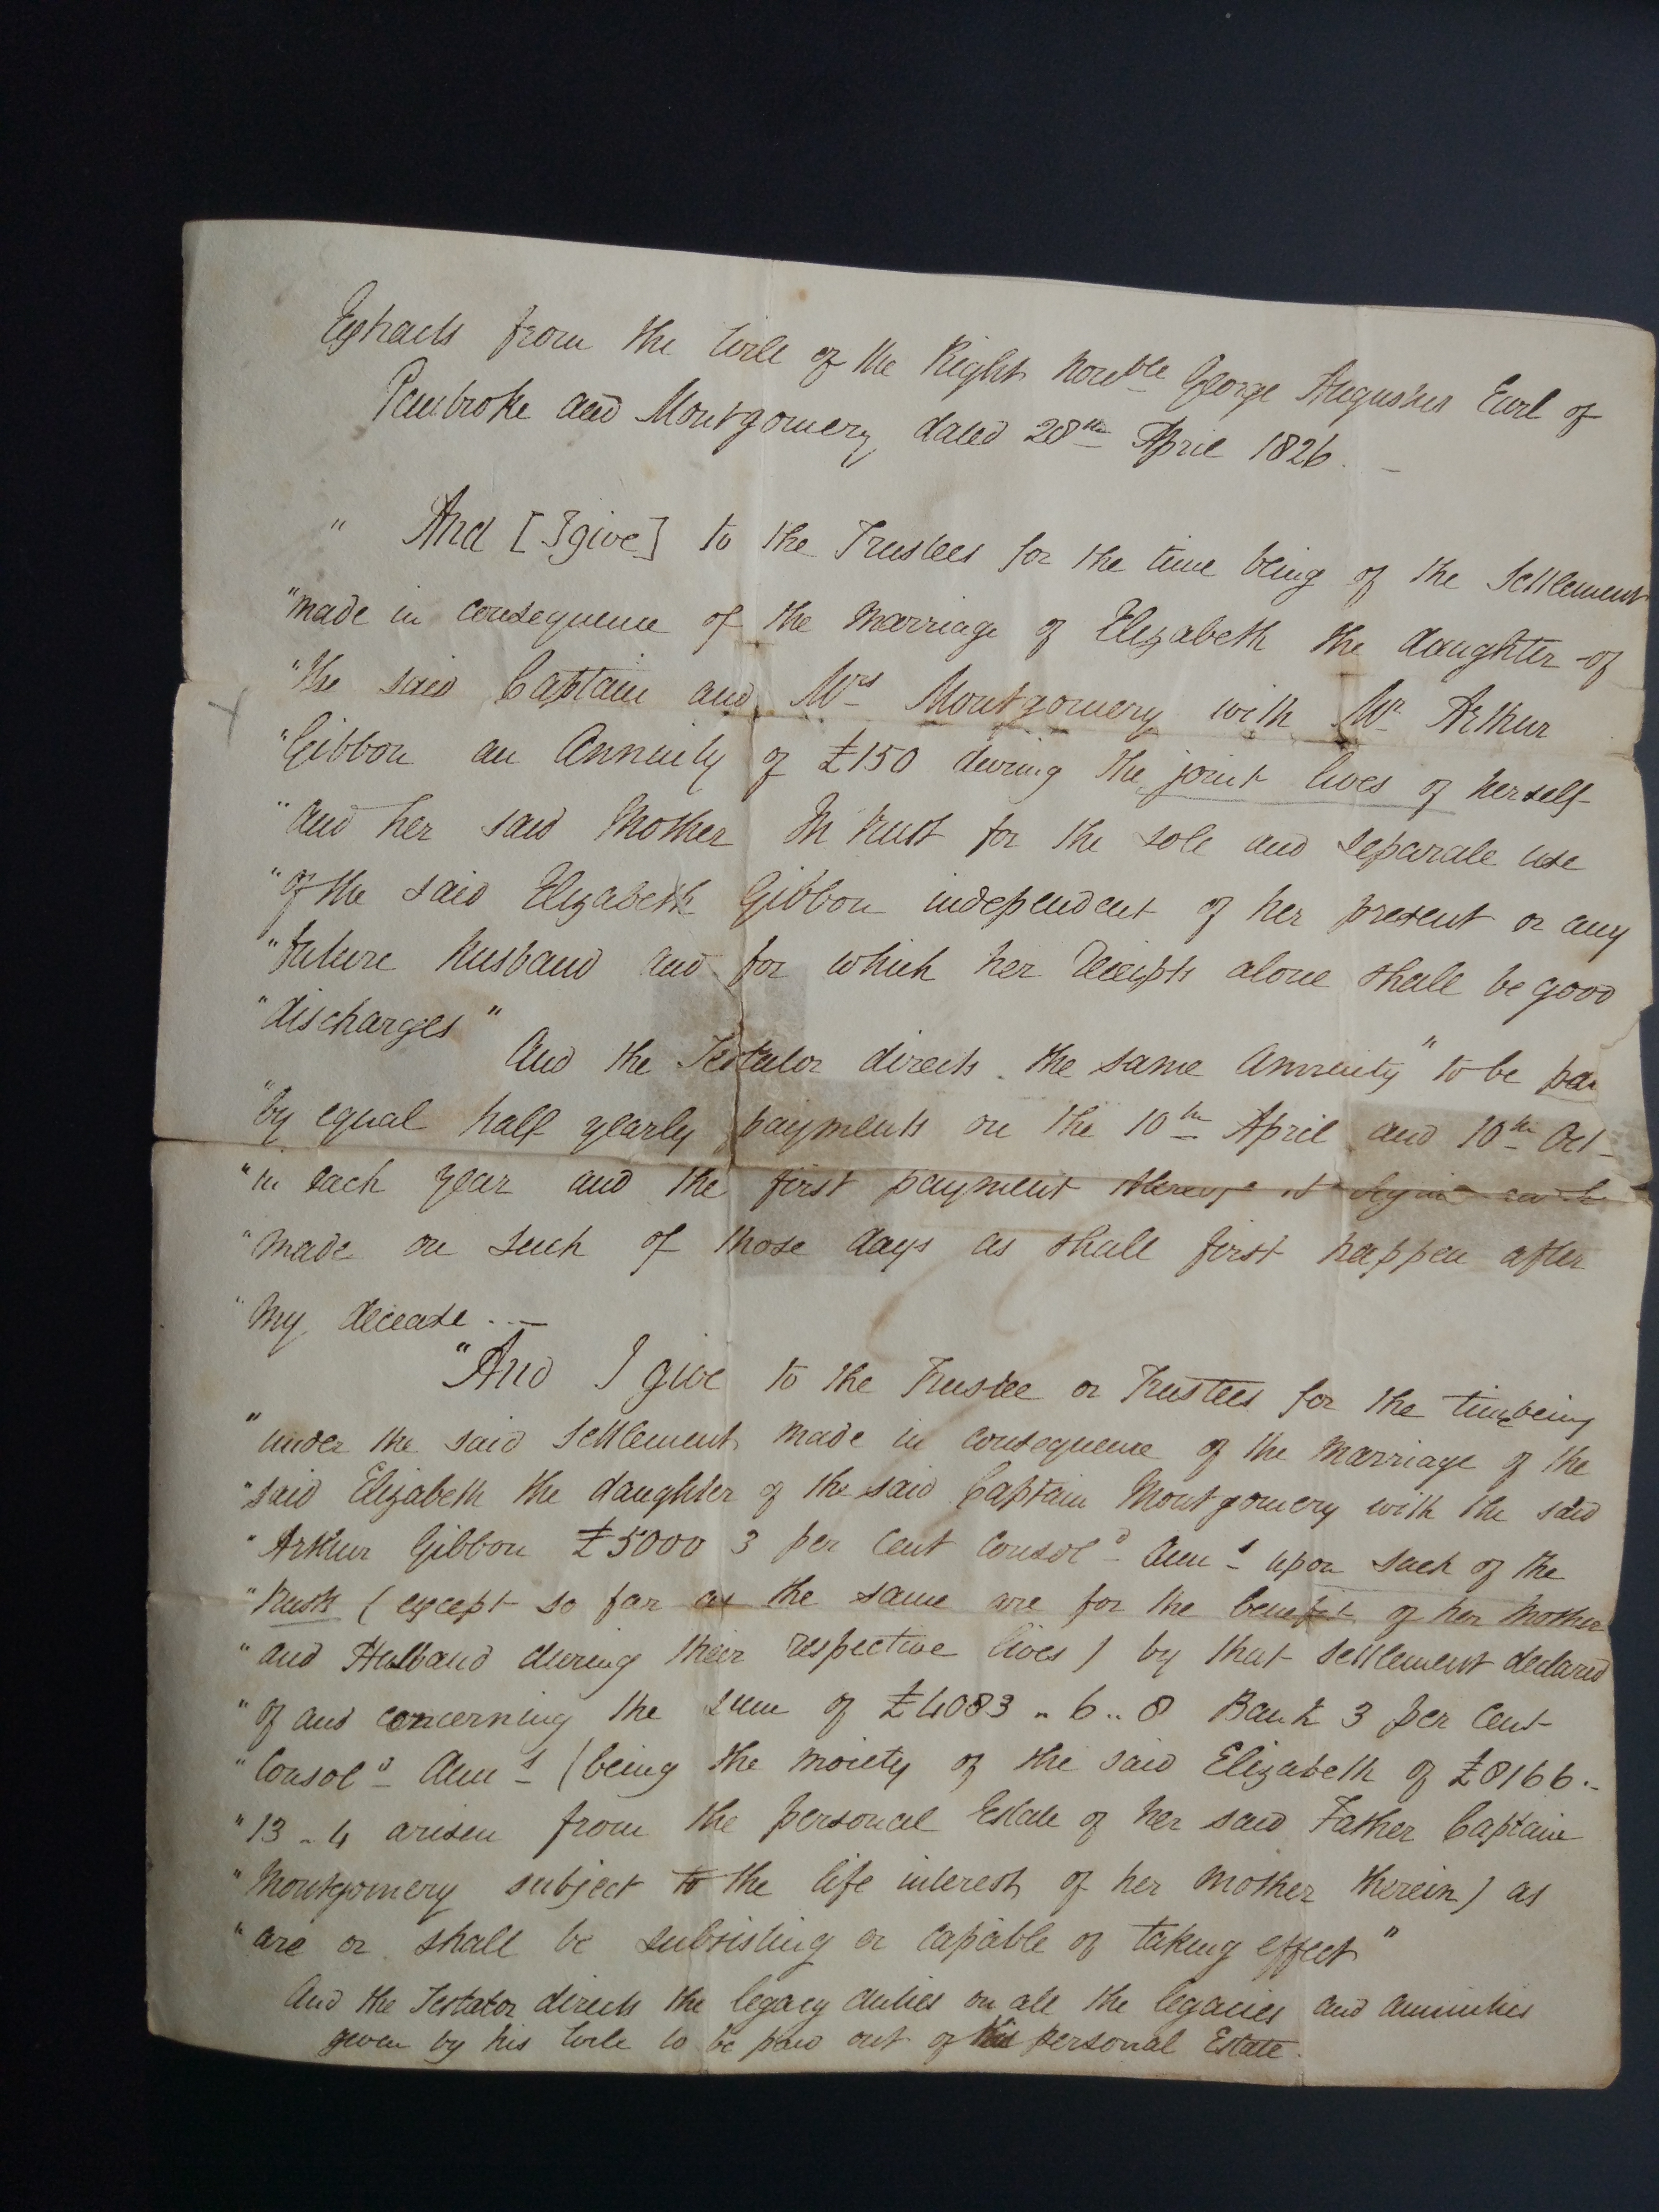 Extracts from the Will of the Right Honble George Augustus Earl of
Pembroke and Montgomery dated 28th April 1826. –
" And [I give] to the Trustees for the time being of the Settlement
"made in consequence of the marriage of Elizabeth the daughter of
"the said Captain and Mrs Montgomery with Mr Arthur
"Gibbon an Annuity of £150 during the joint lives of herself
"and her said Mother In trust for the sole and separate use
"of the said Elizabeth Gibbon independent of her present or any
"future husband and for which her receipts alone shall be good
"discharges"
And the Testator directs the same Annuity "to be
"by equal half yearly payments on the 10th April and 10th Oct
"in each year and the first payment thereof to begin and be
"made on such of those days as shall first happen after
"my decease . . –
"And I give to the Trustee or Trustees for the time being
"under the said Settlement made in consequence of the marriage of the
"said Elizabeth the daughter of the said Captain Montgomery with the said
"Arthur Gibbon £5000 3 per Cent Consold Anns upon such of the
"trusts (except so far as the same are for the benefit of her Mother
"and Husband during their respective lives) by that Settlement declared
"of and concerning the sum of £4083 .. 6 .. 8 Bank 3 per Cent
"Consold Anns (being the moiety of the said Elizabeth of £8166 ..
"13 .. 4 arisen from the personal Estate of her said Father Captain
"Montgomery subject to the life interest of her Mother therein) as
"are or shall be subsisting or capable of taking effect"
And the Testator directs the legacy duties on all the legacies and annuities
given by his Will to be paid out of his personal Estate.